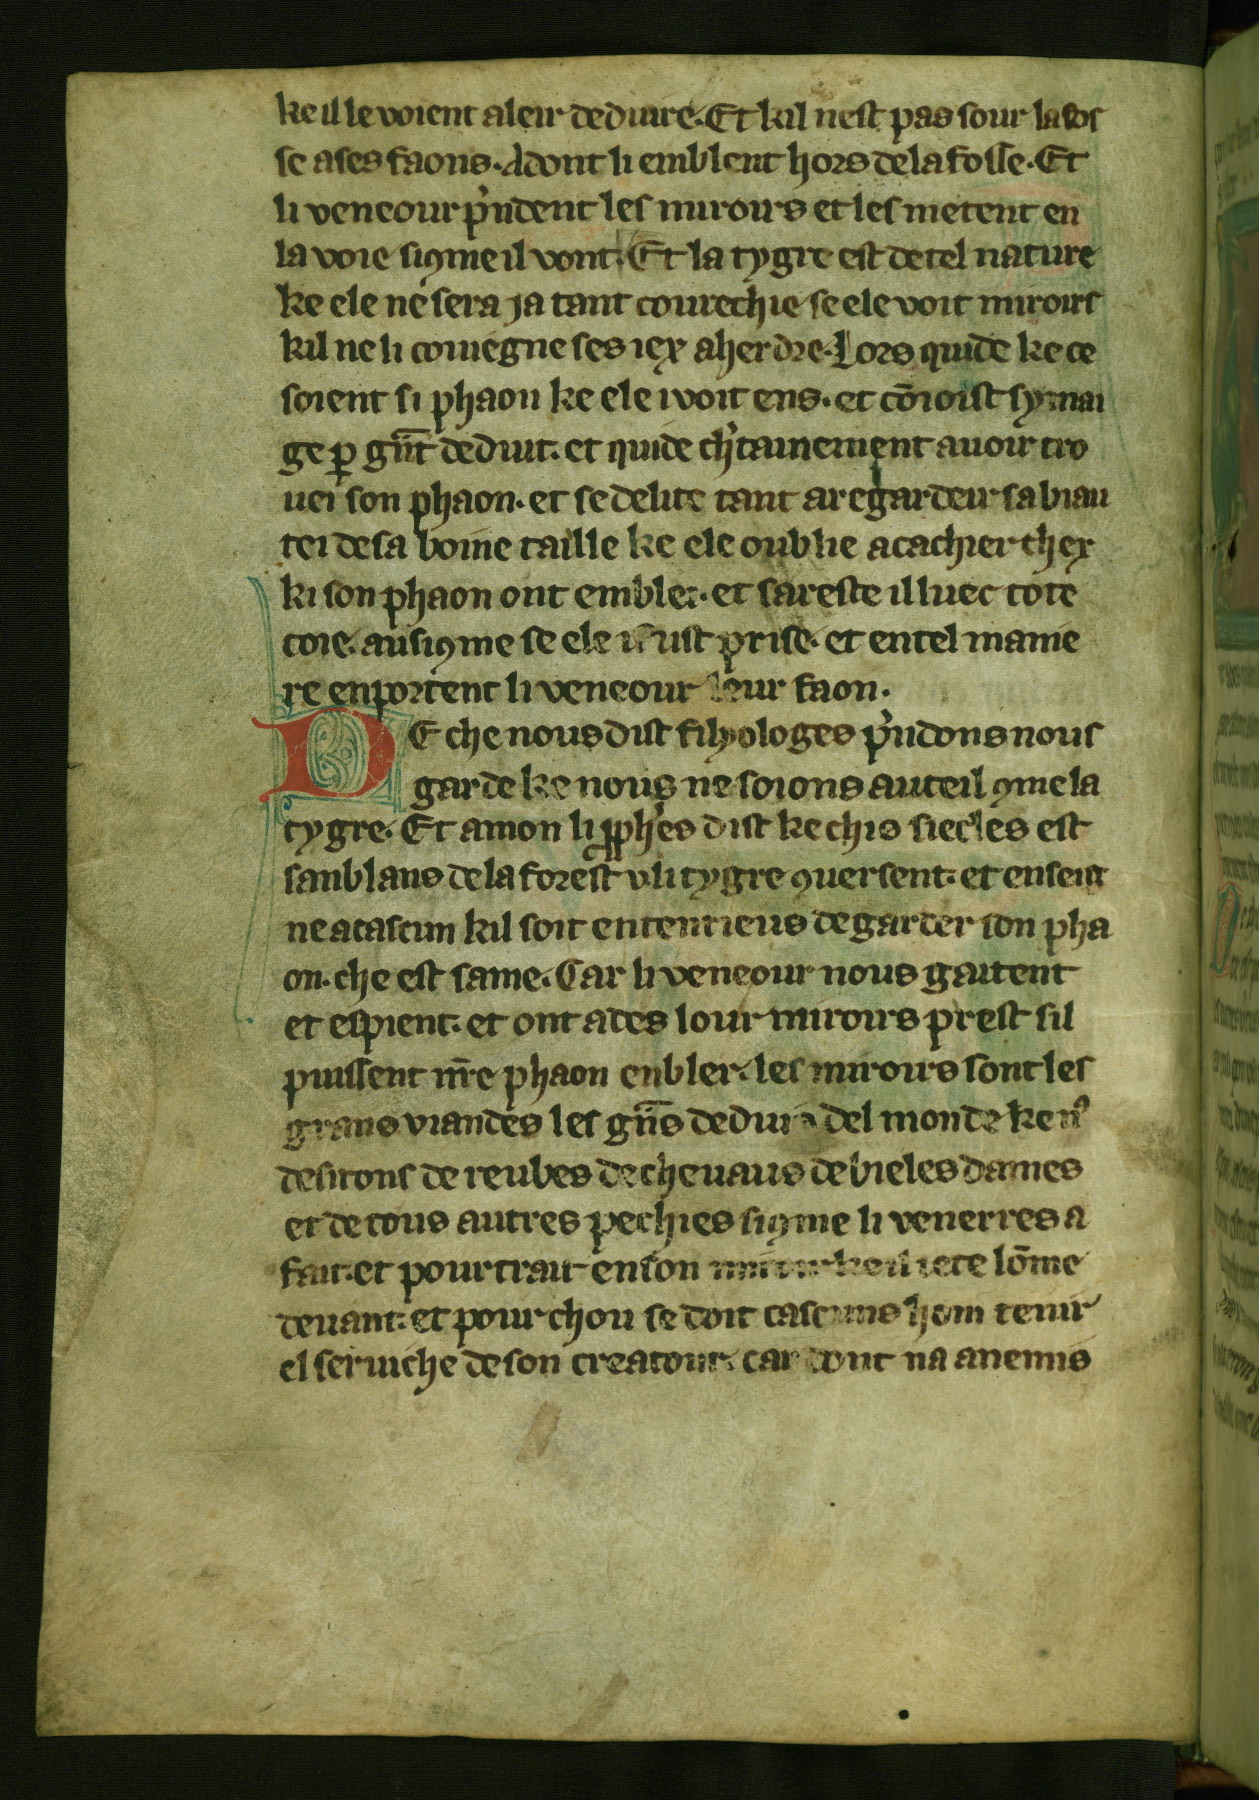 ke il le voient aleir deduire. Et kil nest pas sour la fos
se a ses faons. Adont li emblent hors de la fosse. Et
li veneour p̓ndent les miroirs et les metent en
la voie si ꝯme il vont. Et la tygre est de tel nature
ke ele ne sera ja tant courechie se ele voit miroirs
kil ne li coviegne ses iex aherdre. Lors quide ke ce
soient si phaon ke ele i voit ens. et cōnoist symai
ge ꝑ gn̄t deduit. et quide ch̓tainement avoir tro
vei son phaon. et se delite tant a regardeir sa biau
tei de sa boine taille ke ele oublie a cachier chex
ki son phaon ont emblei. et sareste illuec tote
coie. ausi ꝯme se ele fust prise. et en tel manie
re enportent li veneour leur faon.
De che nous dist fihyologes p̓ndons nous
garde ke nous ne soions auteil ꝯme la
tygre. Et amon li ꝓphes dist ke chis siecles est
sanblans de la forest u li tygre ꝯversent. et enseig
ne a cascun kil soit ententieus de garder son pha
on. che est same. Car li veneour nous gaitent
et espient. et ont ades lour miroirs prest sil
puissent nr̄e phaon enbler. les miroirs sont les
grans viandes les gn̄s deduis del monde ke nꝰ
desirons de reubes de chevaus de bieles dames
et de tous autres pechies si ꝯme li venerres a
fait. et pourtrait en son miroir ke il iete lōme
devant. et pour chou se doit cascuns hom tenir
el serviche de son creatour. car dont na anemis